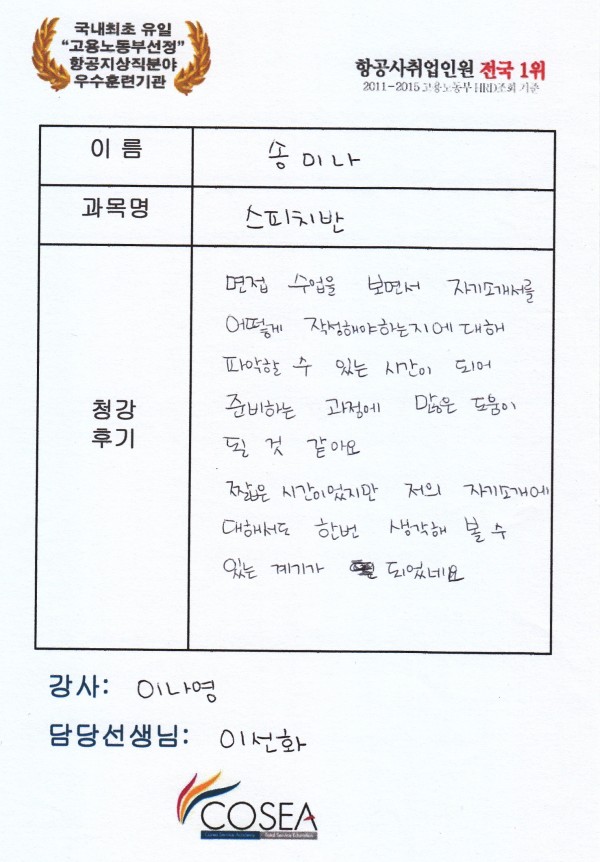 국내최초 유일
"고용노동부선정"
항공지상직분야
우수훈련기관
항공사취업인원 전국 1위
2011-2015고용노동부 HRD조회 기준
이 름
송미나
과목명
스피치반
청강
후기
면접 수업을 보면서 자기소개서를
어떻게 작성해야하는지에 대해
파악할 수 있는 시간이 되어
준비하는 과정에 많은 도움이
될 것 같아요
짧은 시간이었지만 저의 자기소개에
대해서도 한번 생각해 볼 수
있는 계기가 되었네요
강사: 이나영
담당선생님: 이선화
COSEA